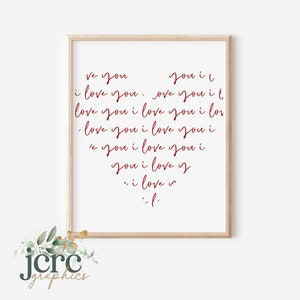 ve you you i
i love you ove you i
love you i love you i lov
love you i love you i
e you i love you i
you i love y
i love
l
jcrc
graphics